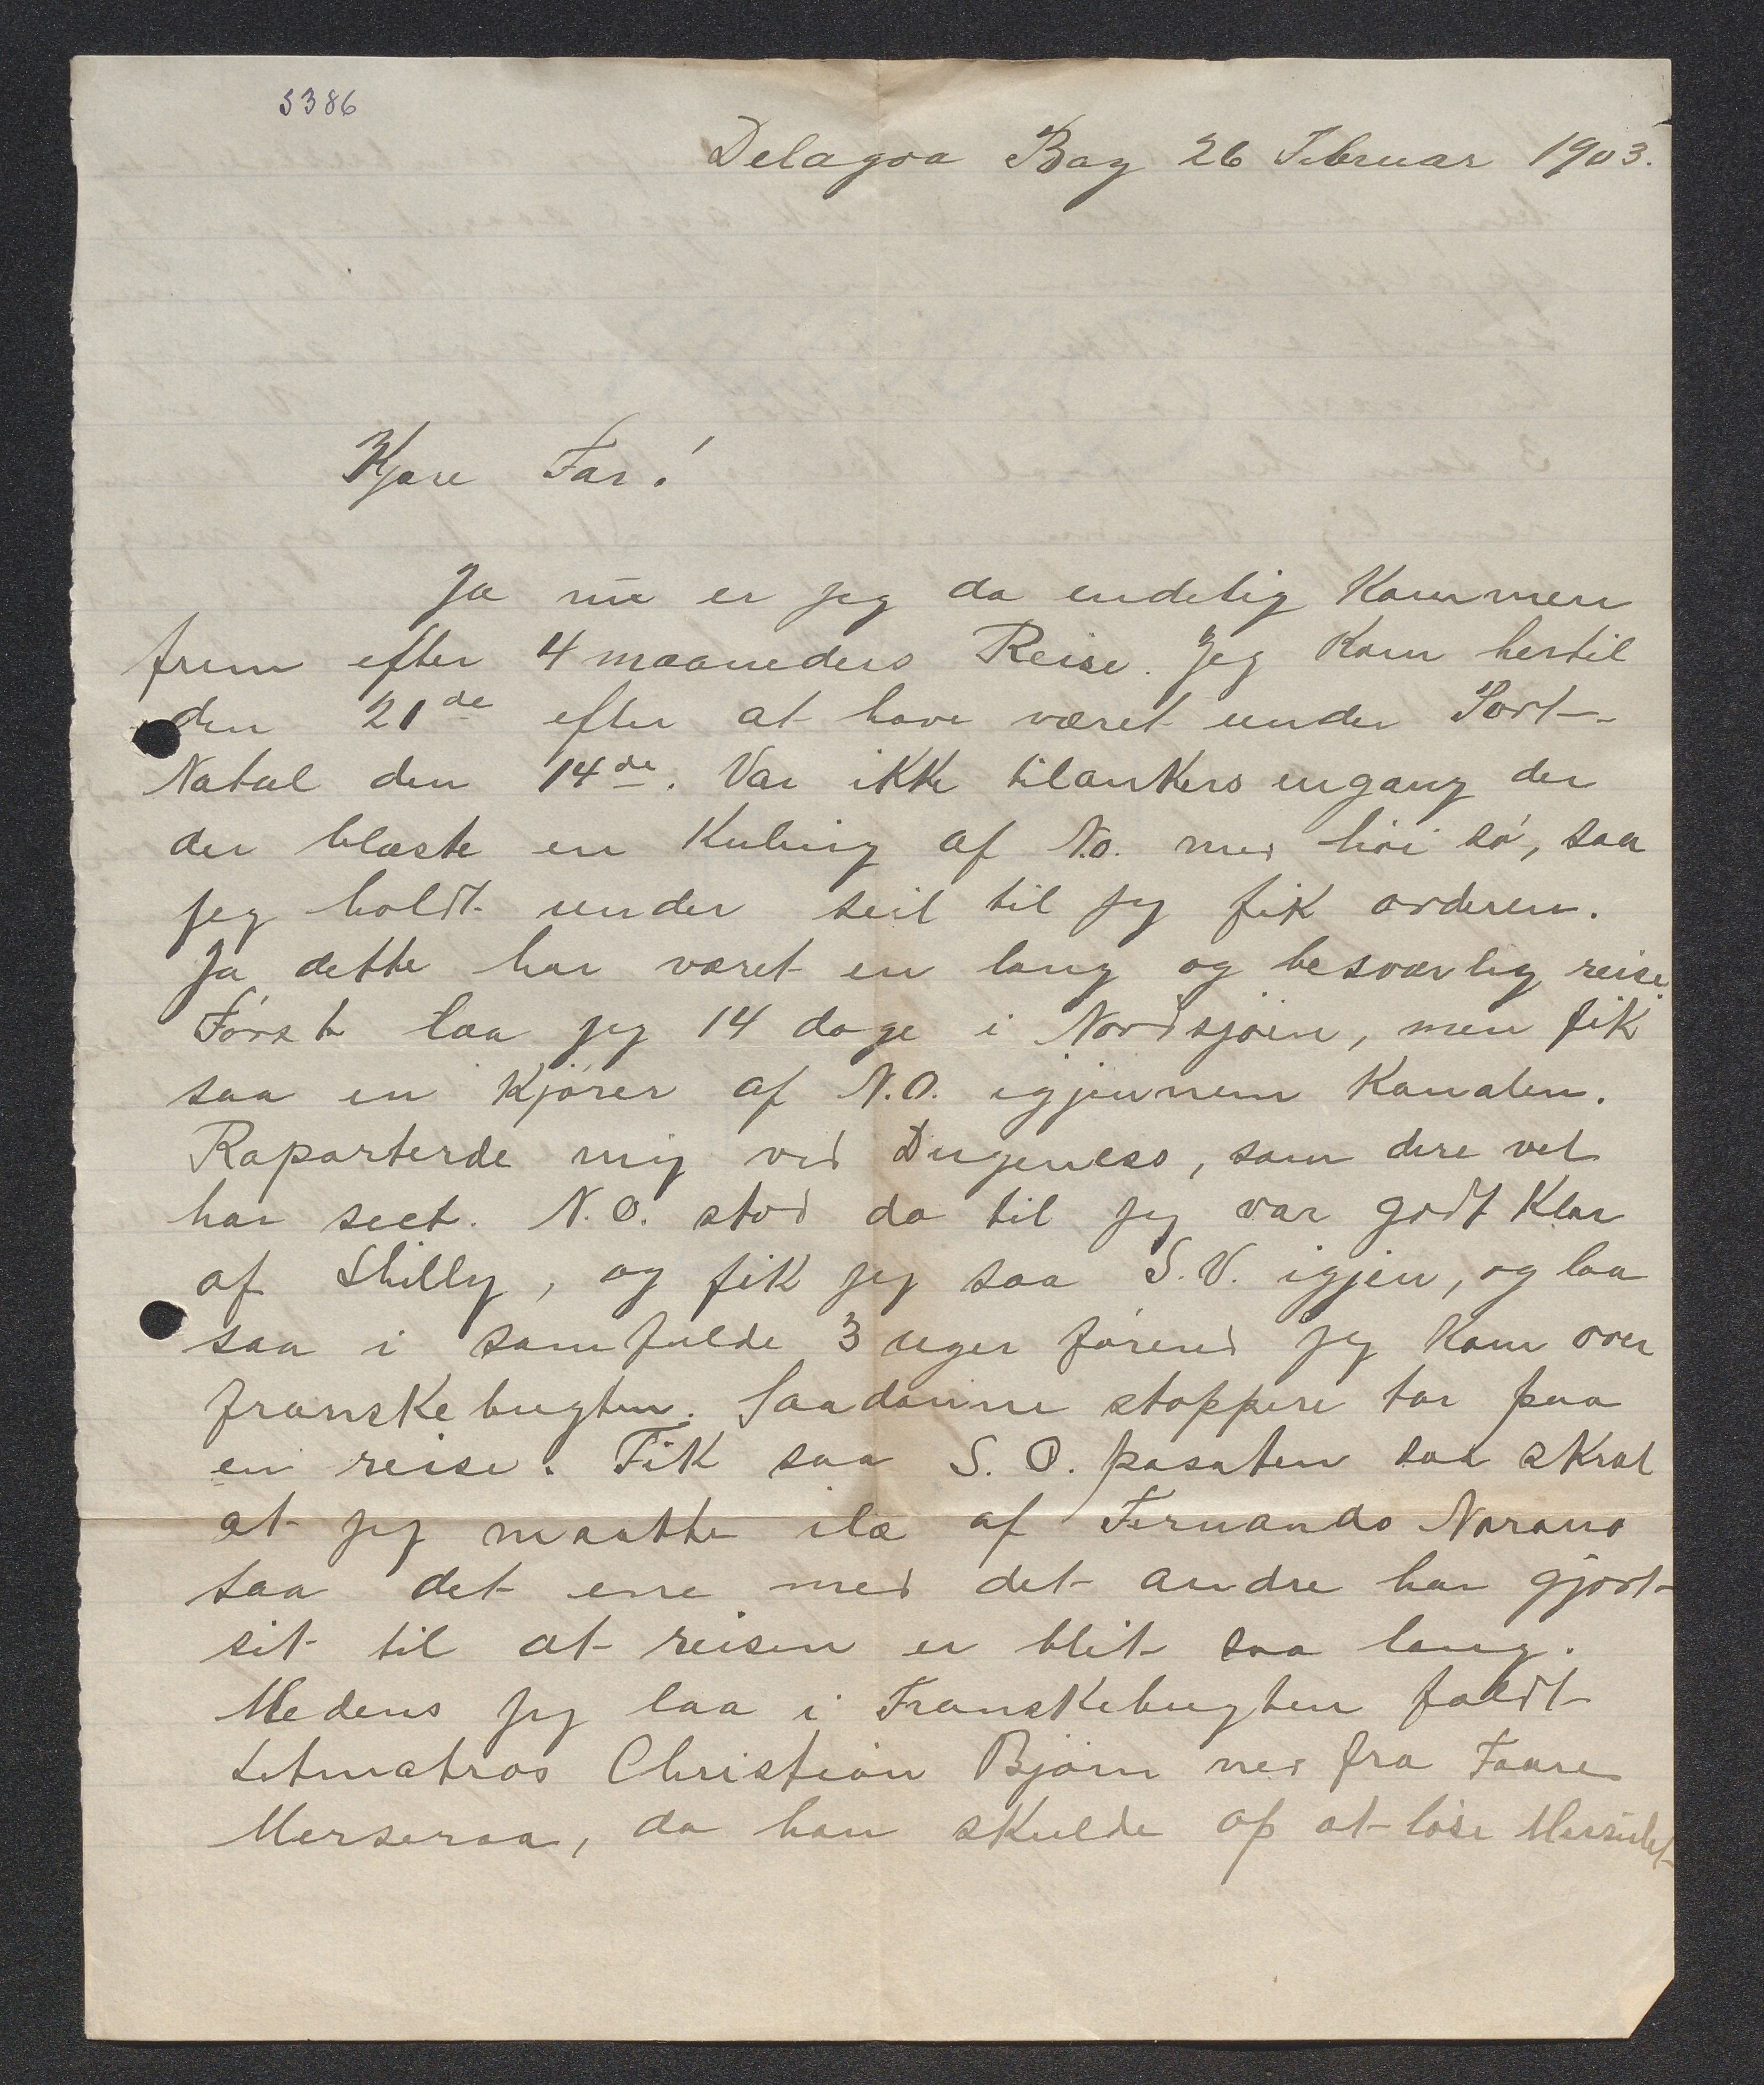 5386
Delagoa Bay 26 Februar 1903.
Kjære Far!
Ja nu er jeg da endelig kommen
frem efter 4 maaneders Reise. Jeg kom hertil
den 21de efter at have været under Port-
Natal den 14de. Var ikke tilankers engang der
der blæste en Kuling af N.O. med høi sø, saa
jeg holdt under seil til jeg fik orderen.
Ja dette har været en lang og besværlig reise.
Først laa jeg 14 dage i Nordsjøen, men fik
saa en kjører af N.O. igjennem Kanalen.
Raporterde mig ved Dugeness, som dere vel
har seet. N.O. stod da til jeg var godt klar
af Shilly, og fik jeg saa S.V. igjen, og laa
saa i samfulde 3 uger førend jeg kom over
franskebugten. Saadanne stoppere tar paa
en reise. Fik saa S.O. pasaten saa skral
at jeg maatte ilæ af Fernando Norano
saa det ene med det andre har gjort
sit til at reisen er blit saa lang.
Medens jeg laa i Franskebugten faldt
Letmatros Christian Bjørn ned fra Faare
Merseraa, da han skulde op at løse